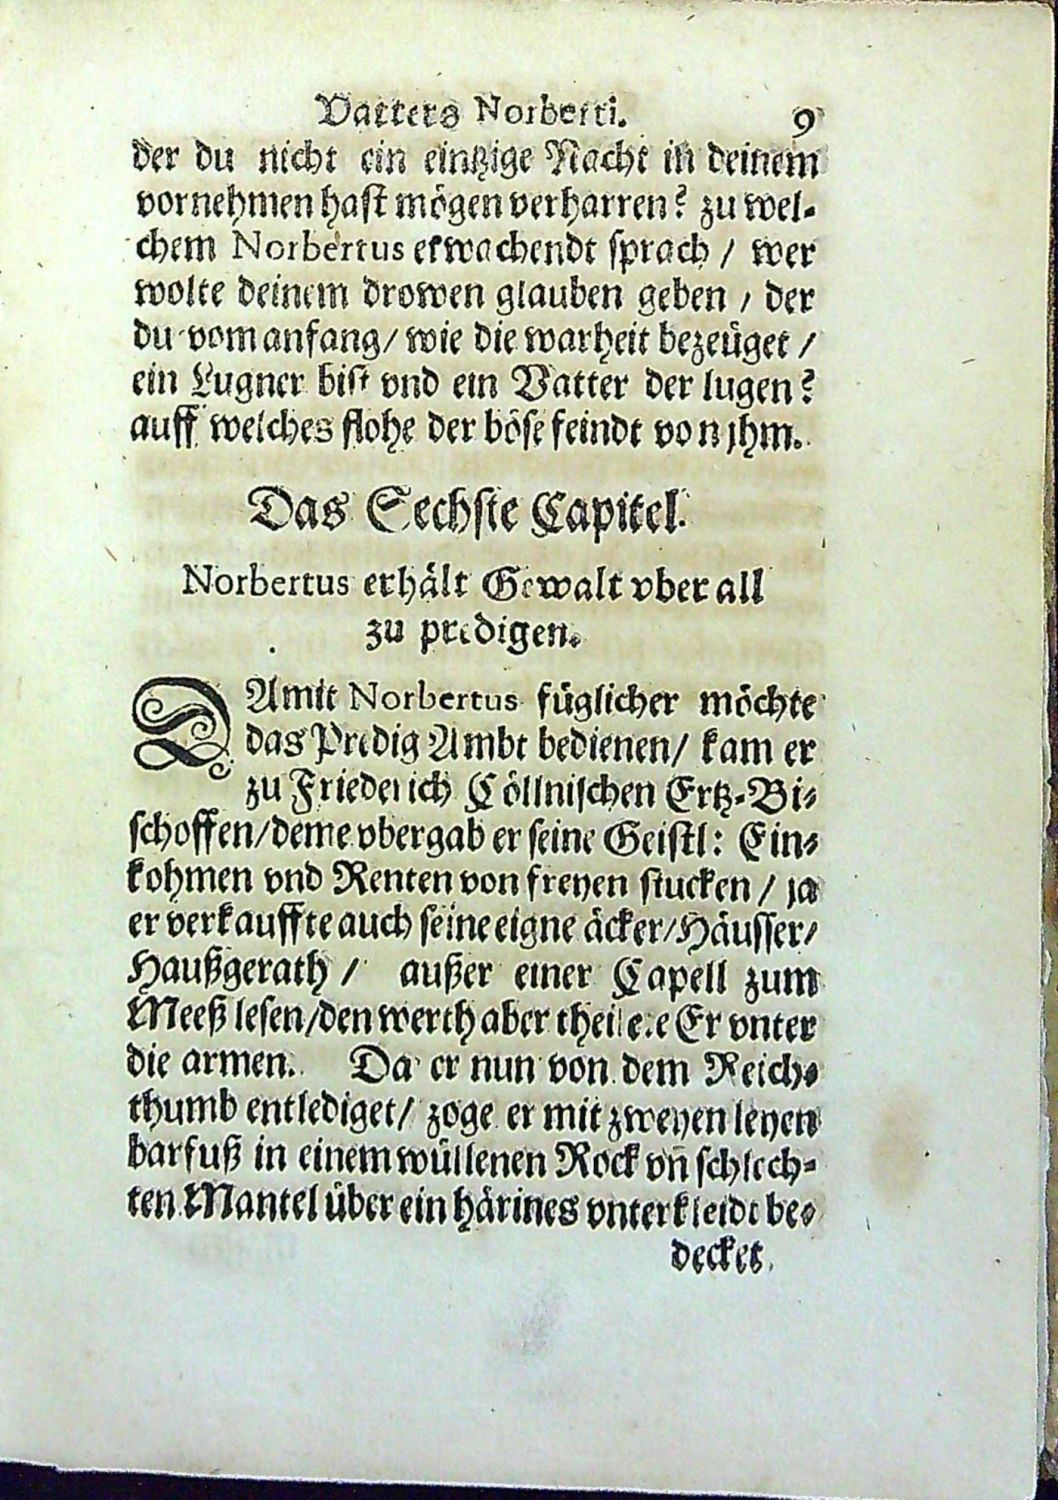 Vatters Norberti. 9
der du nicht ein eintzige Nacht in deinem
vornehmen hast mögen verharren? zu wel-
chem Norbertus erwachendt sprach / wer
wolte deinem drowen glauben geben / der
du vom anfang/ wie die warheit bezeüget /
ein Lugner bist vnd ein Vatter der lugen?
auff welches flohe der böse feindt von jhm.
Das Sechste Capitel.
Norbertus erhält Gewalt vber all
zu predigen.
DAmit Norbertus füglicher möchte
das Predig Ambt bedienen/ kam er
zu Friederich Cöllnischen Ertz-Bi-
schoffen/deme vbergab er seine Geistl: Ein-
kohmen vnd Renten von freyen stucken / ja
er verkauffte auch seine eigne äcker/Häusser/
Haußgerath / außer einer Capell zum
Meeß lesen/den werth aber theilete Er vnter
die armen. Da er nun von dem Reich-
thumb entlediget/ zoge er mit zweyen leyen
barfuß in einem wüllenen Rock vn̄ schlech-
ten Mantel über ein härines vnterkleidt be-
decket.